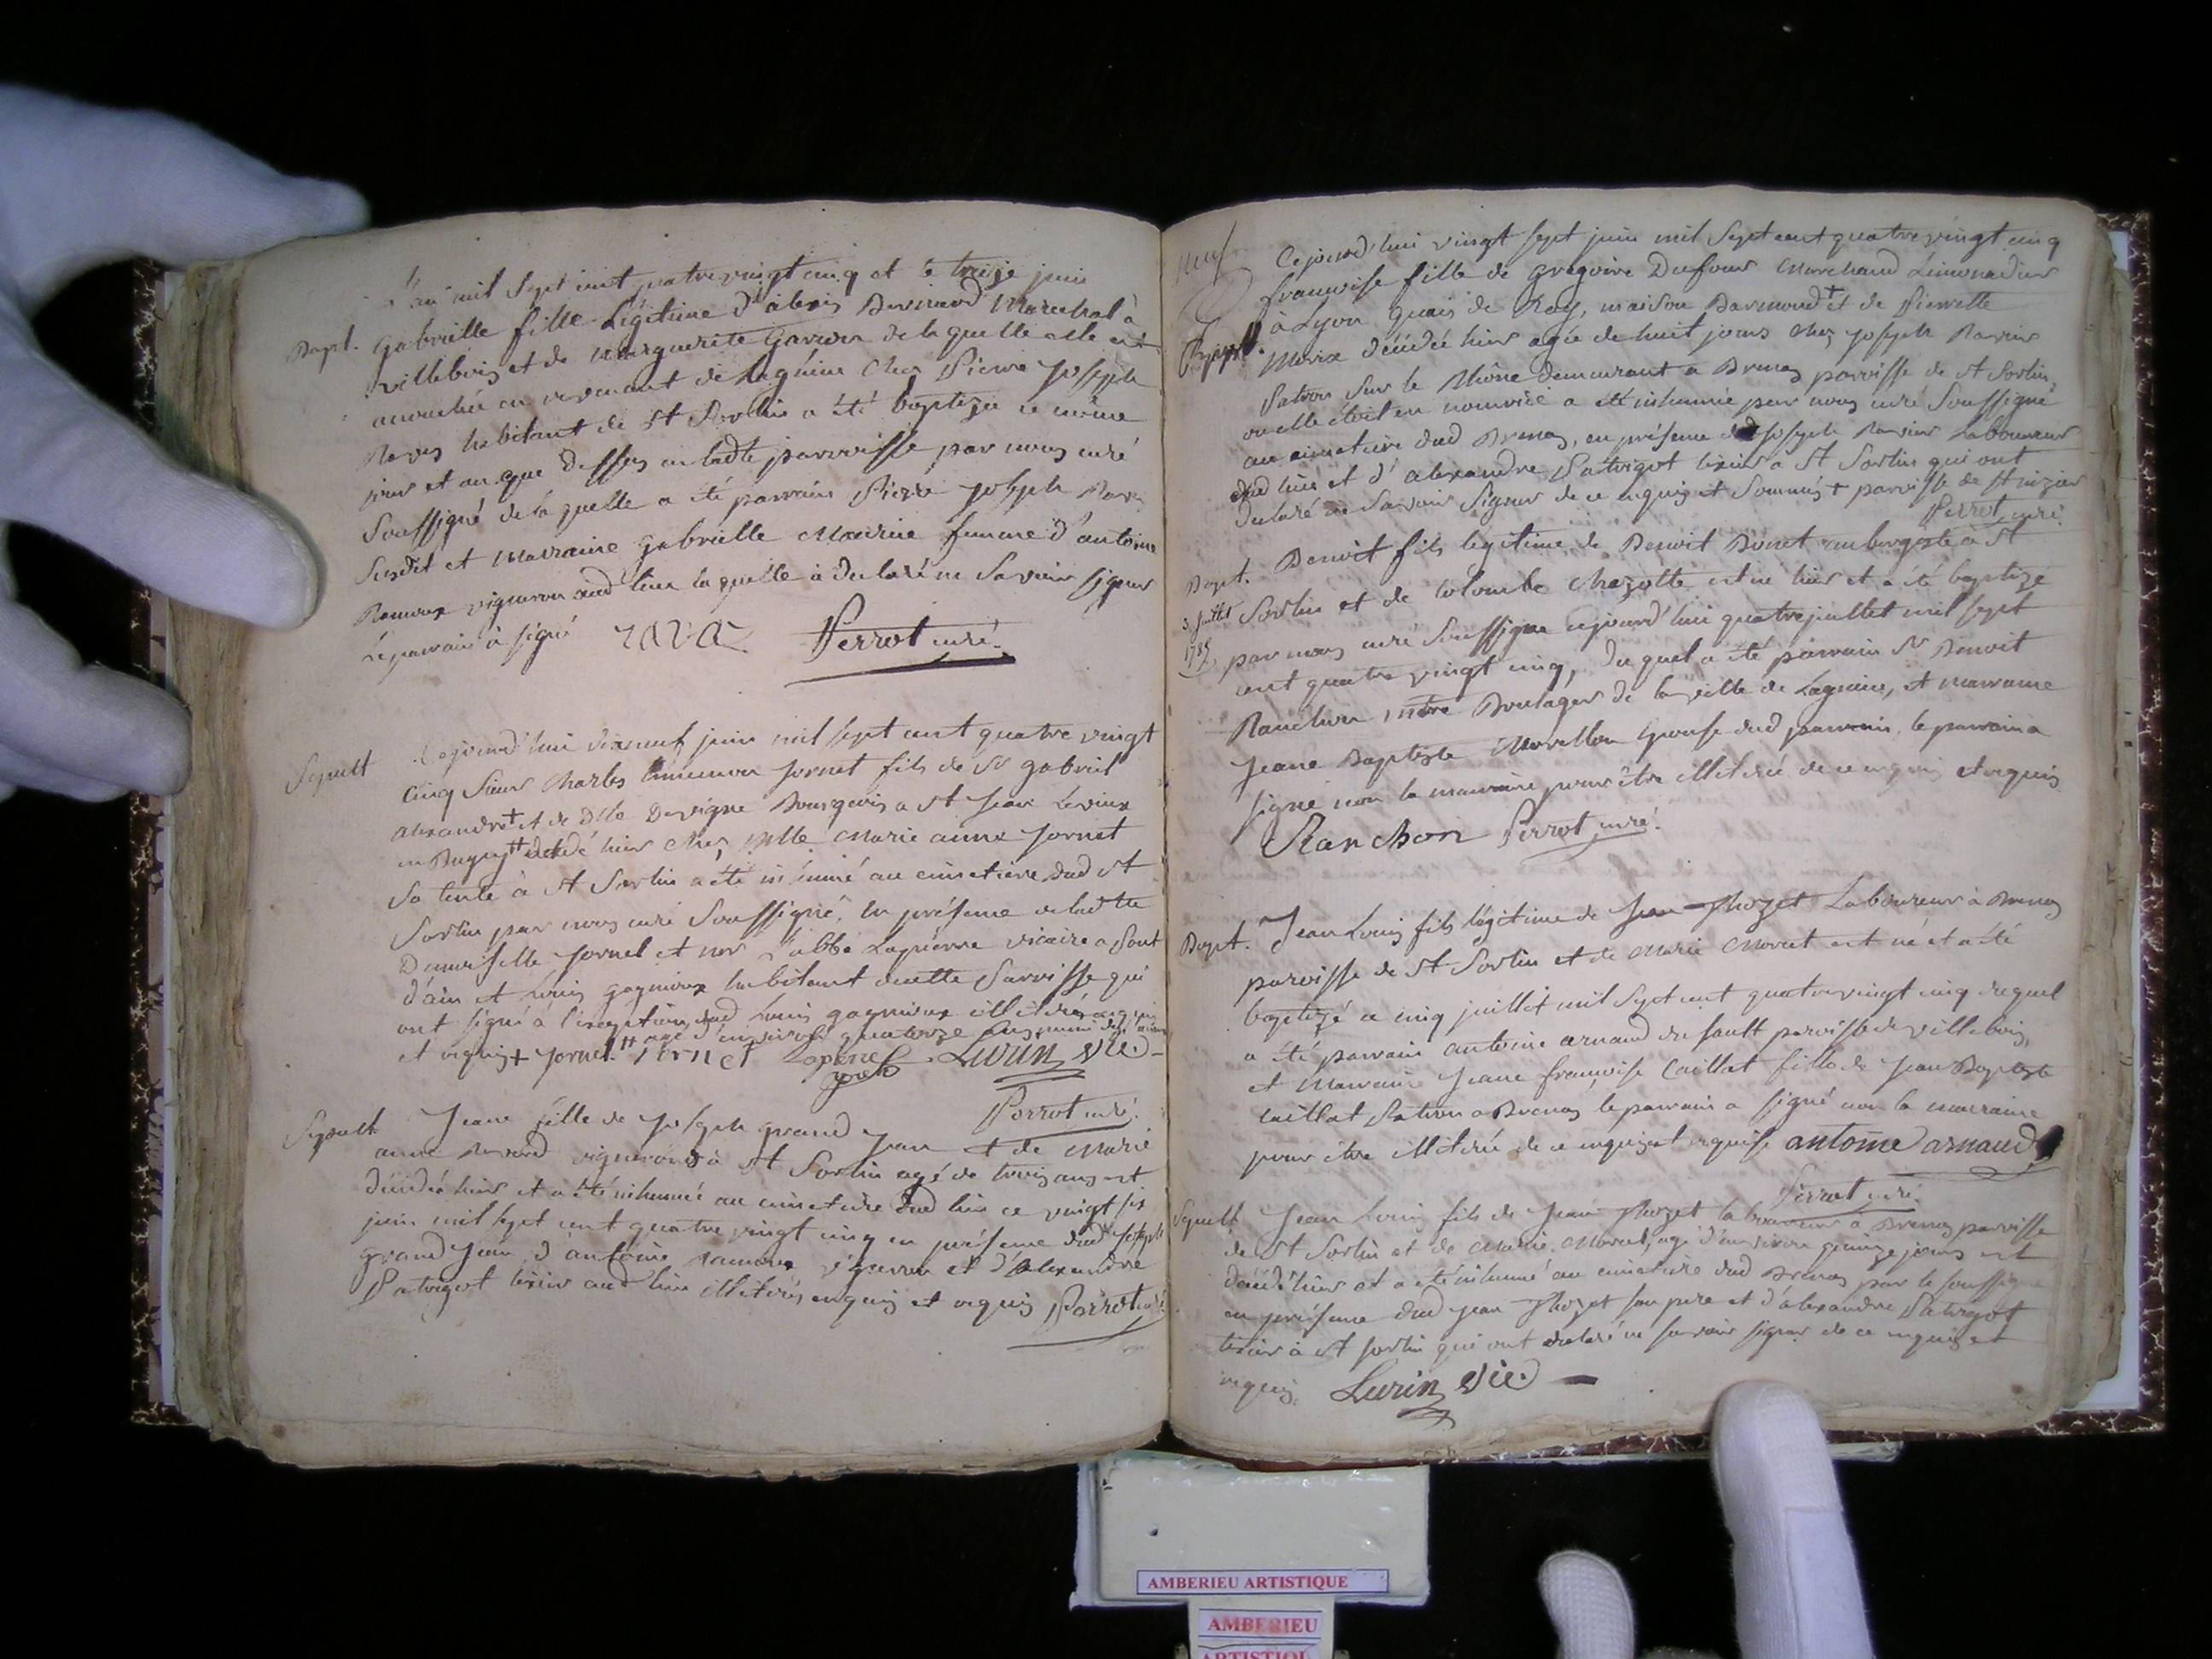 Bapt.
L'an mil sept cent quatre vingt cinq et le treize juin
gabrielle fille Légitime d'alexis Marechal à
villebois et de Marguerite de la quelle elle est
accouchée en revenant de Lagnieu chez Pierre Joseph
Ravas habitant de St Sortin a été baptizée ce même
jour et an que dessus en ladte parroisse par nous curé
soussigné de la quelle a été parrain Pierre joseph
susdit et marraine gabrielle femme d'antoine
Ramoux vigneron aud lieu la quelle à declaré ne savoir signer
Le parrain à signé Perrot curé.
Sepult
Cejourd'hui dixneuf juin mil sept cent quatre vingt
cinq Sieur Charles jornet fils de Sr gabriel
alexandre + et de Dlle Bourgeois a St jean Levieux
en Bugey ++ décédé hier chez Dlle Marie anne jornet
Sa tente à St Sortin a été inhumé au cimetiere dud St
Sortin par nous curé soussigné, En présence de ladtte
Demoiselle jornet et l'abbé Lapierre vicaire a Pont
d'ain et Louis gagnieux habitant de cette Parroisse qui
ont signé à l'exception dud Louis gagnieux illitéré enquis
et requis + jornet. ++ agé d'environ quatorze
jornet Lurin vic
Perrot curé.
Sepult
Jeane fille de joseph grand jean et de Marie
anne vignerons à St Sortin agé de trois ans est
décédée hier et a été inhumée au cimetiere dud lieu ce vingt six
juin mil sept cent quatre vingt cinq en présence dud joseph
grand jean, d'antoine Ramoux vigneron et d'Alexandre
Patrigot tixier aud lieu illitérés enquis et requis Perrot curé
neuf
Cejourd'hui vingt sept juin mil sept cent quatre vingt cinq
francoise fille de gregoire Dufour Marchand Limonadier
à Lyon quais de Roy, maison + et de Pierrette
décédée hier agée de huit jours chez joseph Ravier
Patron sur le Rhône demeurant a Brenas paroisse de St Sortin,
ou elle étoit en nourrice a été inhumée par nous curé soussigné
au cimetiere dud Brenas, en présence dud joseph Ravier Laboureur
dud lieu et d'alexandre Patrigot tixier a St Sortin qui ont
declaré ne savoir signer de ce enquis et sommés + paroisse de St nizier
Perrot curé.
Bapt.
3 juillet
1785
Benoit fils legitime de Benoit Bonet aubergiste à St
Sortin et de Colombe Chazotte est né hier et a été baptizé
par nous curé soussigné cejourd'hui quatre juillet mil sept
cent quatre vingt cinq, du quel a été parrain Sr Benoit
Ranchon mtre Boulager de la ville de Lagnieu, et marraine
Jeane Baptiste Morellon épouse dud parrain, le parrain a
signé non la marraine pour être illitérée de ce enquis et requis
Ranchon Perrot curé.
Bapt.
Jean Louis fils légitime de Jean Laboureur à Brenas
paroisse de St Sortin et de Marie Moret est né et a été
baptizé ce cinq juillet mil sept cent quatre vingt cinq duquel
a été parrain antoine arnaud du sault paroisse de villebois,
et Marraine Jeane francoise Caillat fille de Jean Baptiste
Caillat Patron a Brenas le parrain a signé non la marraine
pour être illitérée de ce enquis et requise antoine arnaud
Perrot curé.
Sepult
Jean Louis fils de Jean laboureur a Brenas paroisse
de St Sortin et de Marie Moret, agé d'environ quinze jours est
décédé hier et a été inhumé au cimetiere dud Brenas par le soussigné
en présence dud jean son pere et d'alexandre Patrigot
tixier à St sortin qui ont declaré ne savoir signer de ce enquis et
requis. Lurin vic
AMBERIEU ARTISTIQUE
AMBERIEU
ARTISTIQUE